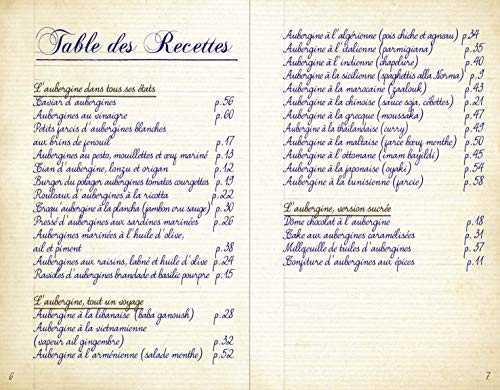 Table des Recettes
L'aubergine dans tous ses états
Caviar d'aubergines p.56
Aubergines au vinaigre p.60
Petits farcis d'aubergines blanches
aux brins de fenouil p.17
Aubergines au pesto, mouillettes et œuf mariné p.13
Tian d'aubergine, lonzu et origan p.12
Burger du potager aubergines tomates courgettes p.19
Rouleaux d'aubergines à la ricotta p.22
Croqu'aubergine à la plancha (jambon cru sauge) p.30
Pressé d'aubergines aux sardines marinées p.26
Aubergines marinées à l'huile d'olive,
ail et piment p.38
Aubergines aux raisins, labné et huile d'olive p.24
Ravioles d'aubergines brandade et basilic pourpre p.15
L'aubergine, tout un voyage
Aubergine à la libanaise (baba ganoush) p.28
Aubergine à la vietnamienne
(vapeur ail gingembre) p.32
Aubergine à l'arménienne (salade menthe) p.52
6
Aubergine à l'algérienne (pois chiche et agneau) p.34
Aubergine à l'italienne (parmigiana) p.35
Aubergine à l'indienne (chapelure) p.40
Aubergine à la sicilienne (spaghettis alla Norma) p.9
Aubergine à la marocaine (zaalouk) p.43
Aubergine à la chinoise (sauce soja, cébettes) p.21
Aubergine à la grecque (moussaka) p.47
Aubergine à la thaïlandaise (curry) p.49
Aubergine à la maltaise (farce bœuf menthe) p.50
Aubergine à l'ottomane (imam bayildi) p.45
Aubergine à la japonaise (oyaki) p.54
Aubergine à la tunisienne (farcie) p.58
L'aubergine, version sucrée
Dôme chocolat à l'aubergine p.18
Cake aux aubergines caramélisées p.31
Millefeuille de tuiles d'aubergines p.37
Confiture d'aubergines aux épices p.11
7